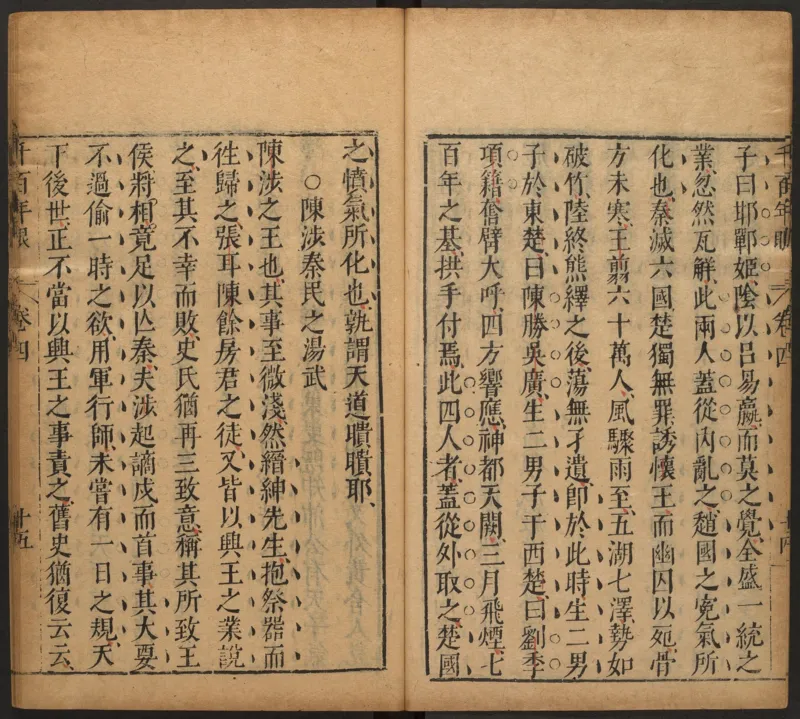 千百年眼 卷四 十四
子曰邯鄲姬陰以呂易嬴而莫之覺全盛一統之
業忽然瓦解此兩人蓋從內亂之趙國之寃氣所
化也秦滅六國楚獨無罪誘懷王而幽囚以死骨
方未寒王翦六十萬人風驟雨至五湖七澤勢如
破竹陸終熊繹之後蕩無孑遺即於此時生二男
子於東楚曰陳勝吳廣生二男子于西楚曰劉季
項籍奮臂大呼四方響應神都天闕三月飛煙七
百年之基拱手付焉此四人者蓋從外取之楚國
之憤氣所化也孰謂天道瞶瞶耶
○陳涉秦民之湯武
陳涉之王也其事至微淺然縉紳先生抱祭器而
徃歸之張耳陳餘房君之徒又皆以興王之業說
之至其不幸而敗史氏猶再三致意稱其所致王
侯將相竟足以亾秦夫涉起謫戍而首事其大要
不過偷一時之欲用軍行師未嘗有一日之規天
下後世正不當以興王之事責之舊史猶復云云
千百年眼 卷四 十五